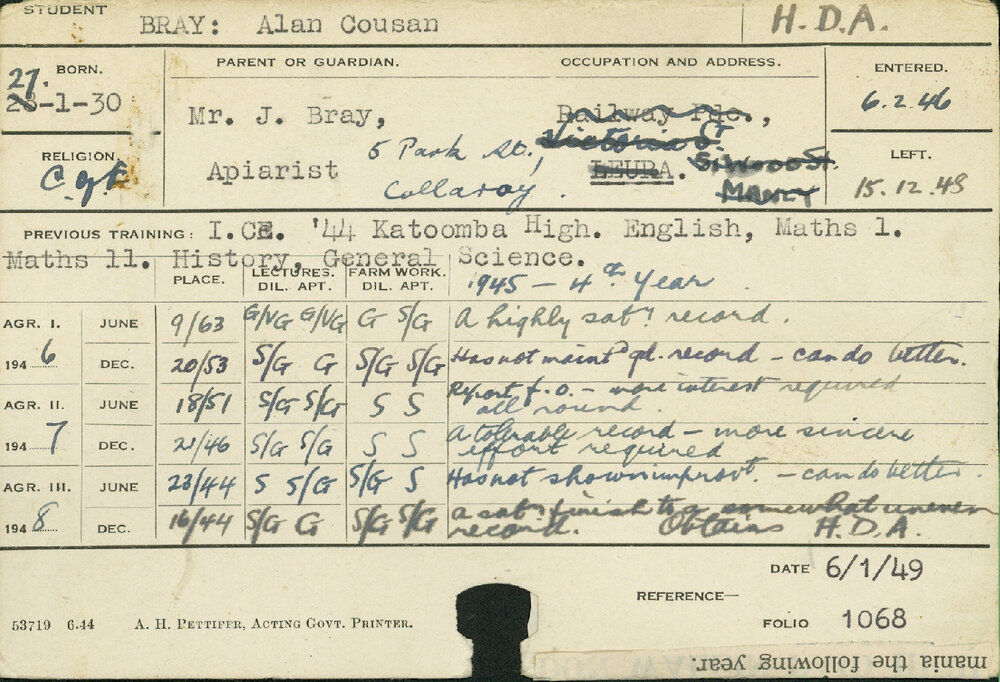 STUDENT BRAY: Alan Cousan H.D.A.
BORN. PARENT OR GUARDIAN. OCCUPATION AND ADDRESS. ENTERED.
27.
28-1-30 Mr. J. Bray, Railway Pde., 6.2.46
Victoria St
RELIGION. 5 Park St., LEURA. 51 WOOD St. LEFT.
C of E Apiarist Collaroy. MANLY 15.12.48
PREVIOUS TRAINING: I.CE. '44 Katoomba High. English, Maths 1.
Maths 11. History, General Science.
PLACE. LECTURES. FARM WORK. 1945 - 4th Year.
DIL. APT. DIL. APT.
AGR. I. JUNE 9/63 G/VG G/VG G S/G A highly sat? record.
1946 DEC. 20/53 S/G G S/G S/G Has not maintd gd. record - can do better.
AGR. II. JUNE 18/51 S/G S/G S S Report f.o. - more interest required
all round.
1947 DEC. 21/46 S/G S/G S S A tolerable record - more sincere
effort required
AGR. III. JUNE 23/44 S S/G S/G S Has not shown improvt. - can do better.
1948 DEC. 16/44 S/G G S/G S/G a saty finish to a somewhat uneven
record. Obtains H.D.A.
DATE 6/1/49
REFERENCE—
FOLIO 1068
53719 6.44 A. H. PETTIFER, ACTING GOVT. PRINTER.
mania the following year.